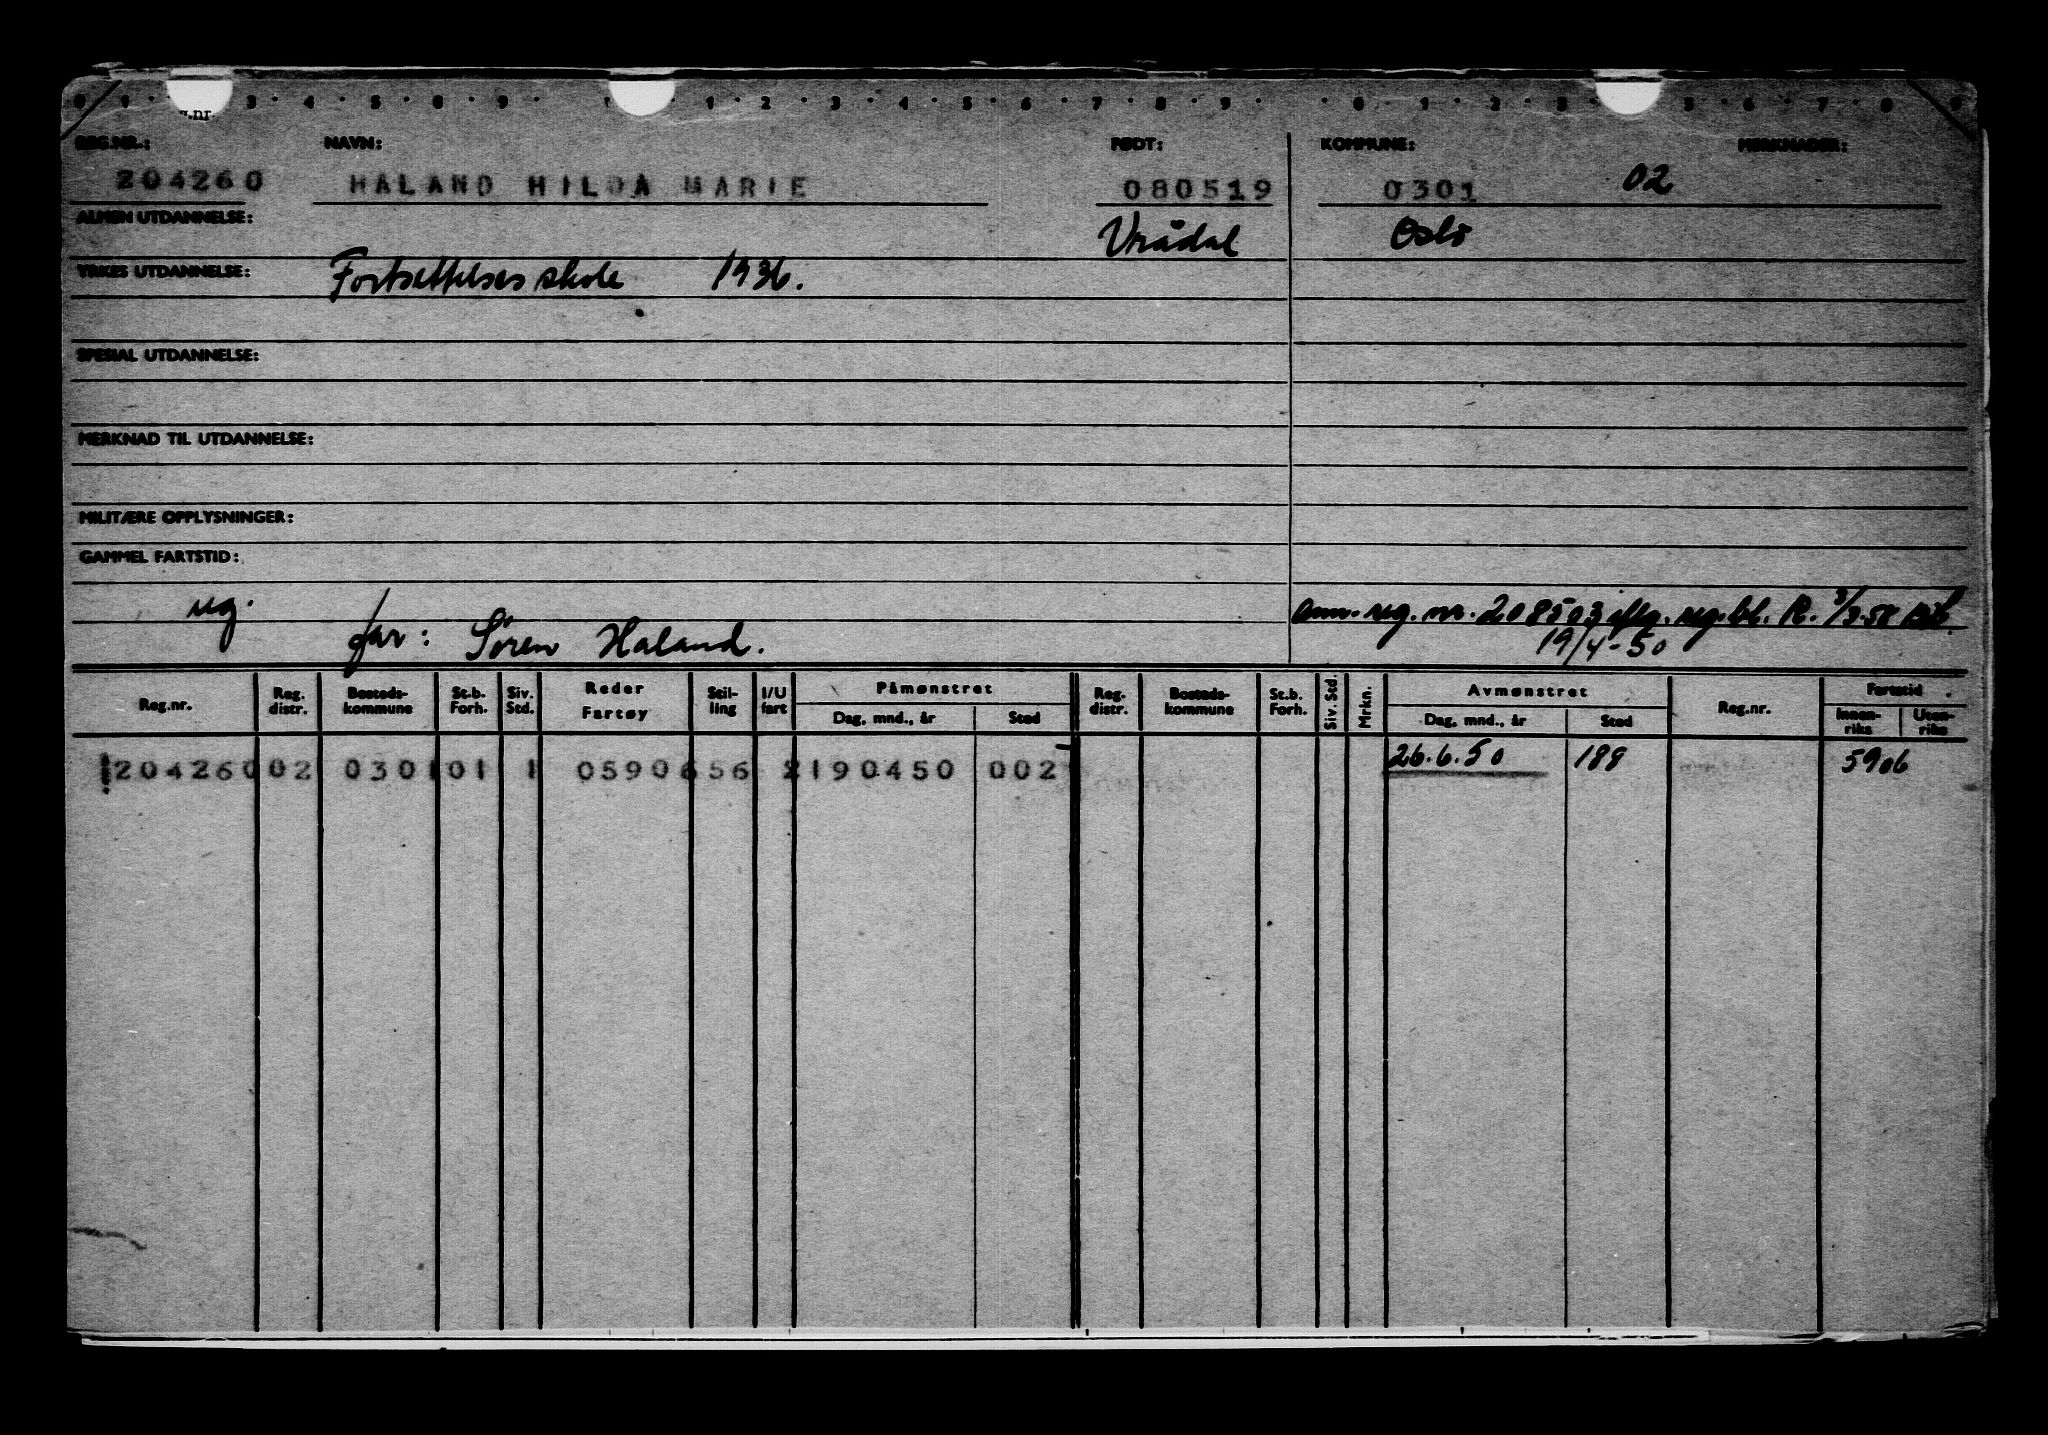 0 1 3 4 5 6 9 1 2 3 4 5 6 7 8 9 0 1 2 3 5 6 7 8 9
g.nr.
REG.NR.: NAVN: FØDT: KOMMUNE: MERKNADER:
204260 HALAND HILDA MARIE 080519 0301 02
ALMEN UTDANNELSE: Vrådal Oslo
YRKES UTDANNELSE: Fortsettelsesskole 1936.
SPESIAL UTDANNELSE:
MERKNAD TIL UTDANNELSE:
MILITÆRE OPPLYSNINGER:
GAMMEL FARTSTID:
ug. far: Søren Haland.
Ann. reg. nr. 208503 iflg. reg.bl. R. 3/3.58
19/4-50
Reg.nr. Reg. distr. Bosteds-kommune St.b. Forh. Siv. Std. Reder Fartøy Stil-ling I/U fart Påmønstret Dag, mnd., år Sted Reg. distr. Bosteds-kommune St.b. Forh. Siv. Std. Mrkn. Avmønstret Dag, mnd., år Sted Reg.nr. Fartstid Innen-riks Uten-riks
204260 02 0301 01 1 05906 56 2 190450 002 26.6.50 188 5906